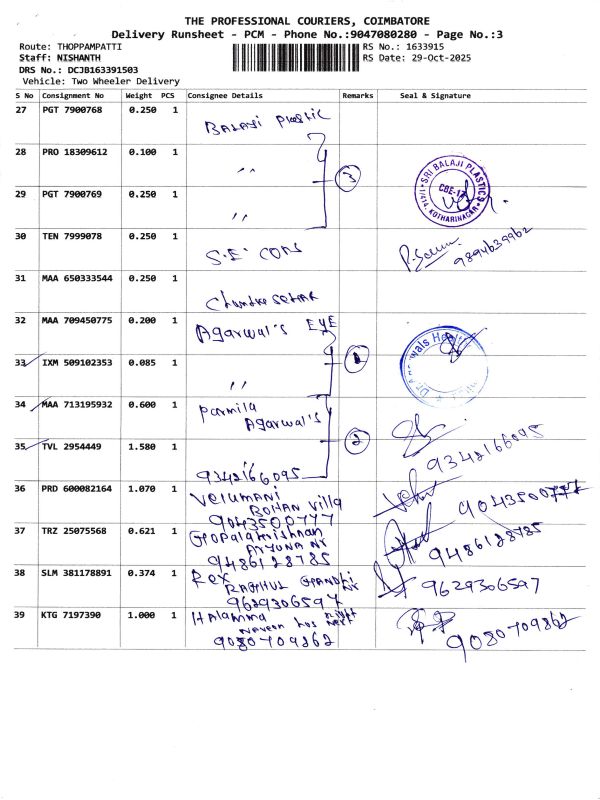 THE PROFESSIONAL COURIERS, COIMBATORE
Delivery Runsheet - PCM - Phone No.:9047080280 - Page No.:3
Route: THOPPAMPATTI RS No.: 1633915
Staff: NISHANTH RS Date: 29-Oct-2025
DRS No.: DCJB163391503
Vehicle: Two Wheeler Delivery
S No Consignment No Weight PCS Consignee Details Remarks Seal & Signature
27 PGT 7900768 0.250 1 Balaji Plastic
28 PRO 18309612 0.100 1 ,, 3
SRI BALAJI PLASTICS
CBE-17
KOTHARINAGAR
29 PGT 7900769 0.250 1 ,,
30 TEN 7999078 0.250 1 S.E. CONS
9894639962
31 MAA 650333544 0.250 1 Chandrasekar
32 MAA 709450775 0.200 1 Agarwal's EYE
33 IXM 509102353 0.085 1 ,,
34 MAA 713195932 0.600 1 Parmila
Agarwal's
35 TVL 2954449 1.580 1 2
9342166095 9342166095
36 PRD 600082164 1.070 1 Velumani
Bohan Villa
9043500777 9043500777
37 TRZ 25075568 0.621 1 Gopalakrishnan
Arjuna Nr
9486128785 9486128785
38 SLM 381178891 0.374 1 Rex
Raghul Gandhi Nr
9629306597 9629306597
39 KTG 7197390 1.000 1 Halamma
9080709862 9080709862